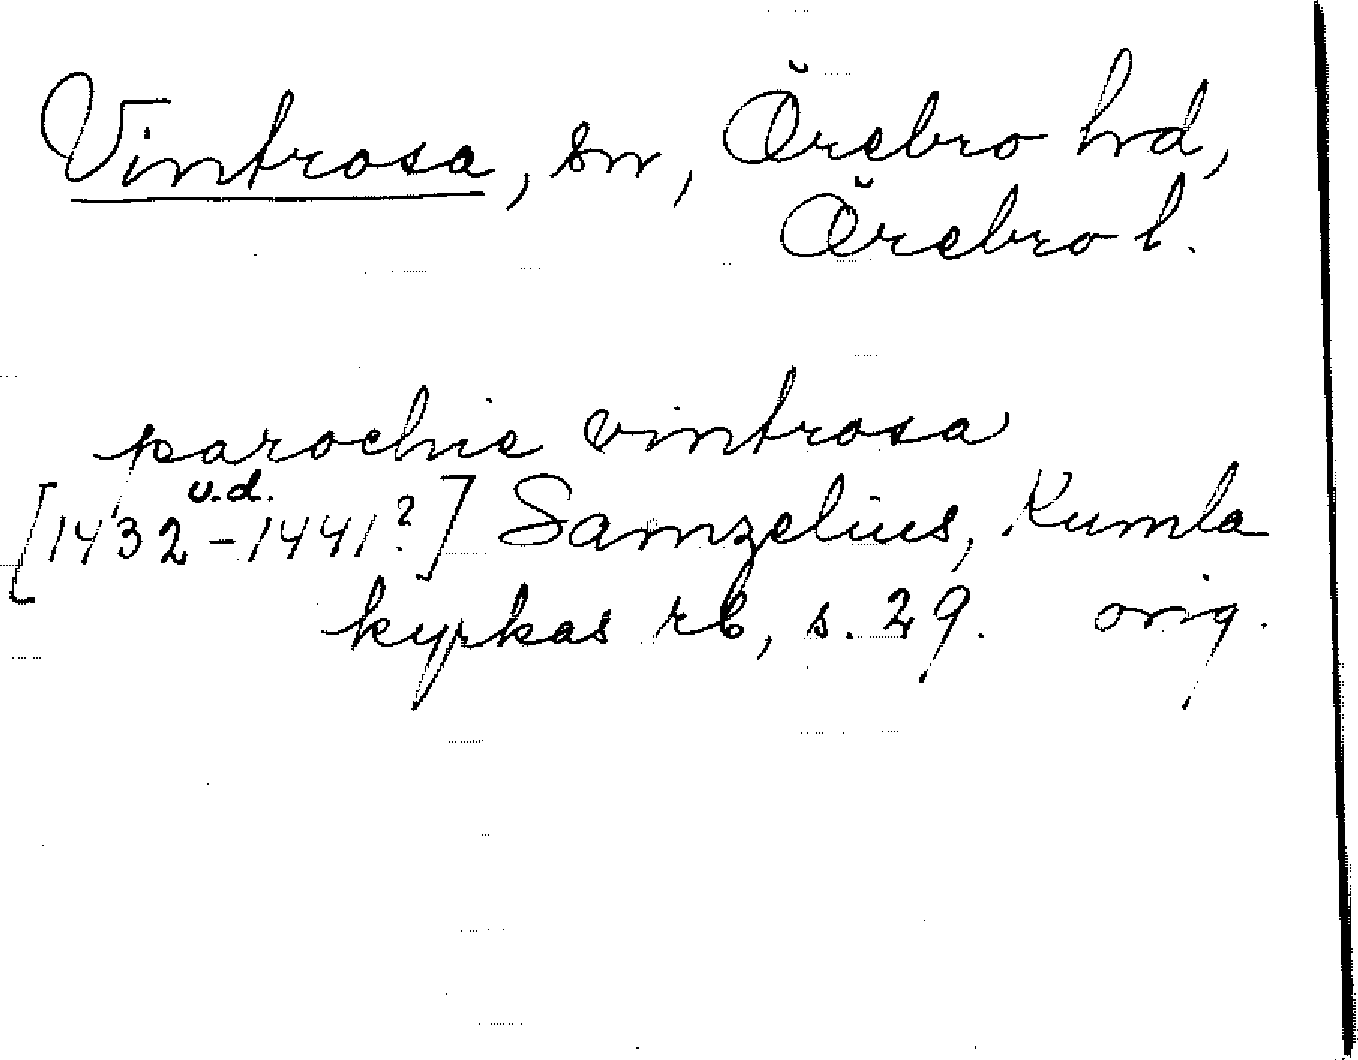 Vintrosa, sn, Örebro hd,
Örebro l.
parochie vintrosa
u.d.
[1432-1441?] Samzelius, Kumla
kyrkas rb, s. 29. orig.